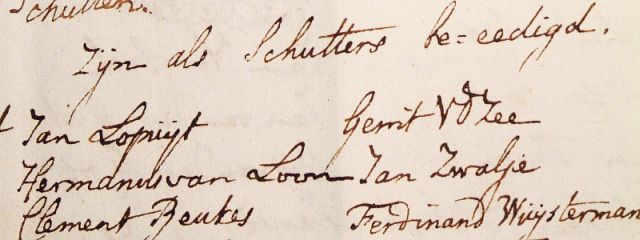 Schutten.
Zijn als Schutters be=eedigd.
Jan Lopuijt Gerrit Vd Zee
Hermanus van Loon Jan Zwalje
Clement Beukes Ferdinand Wuijsterman